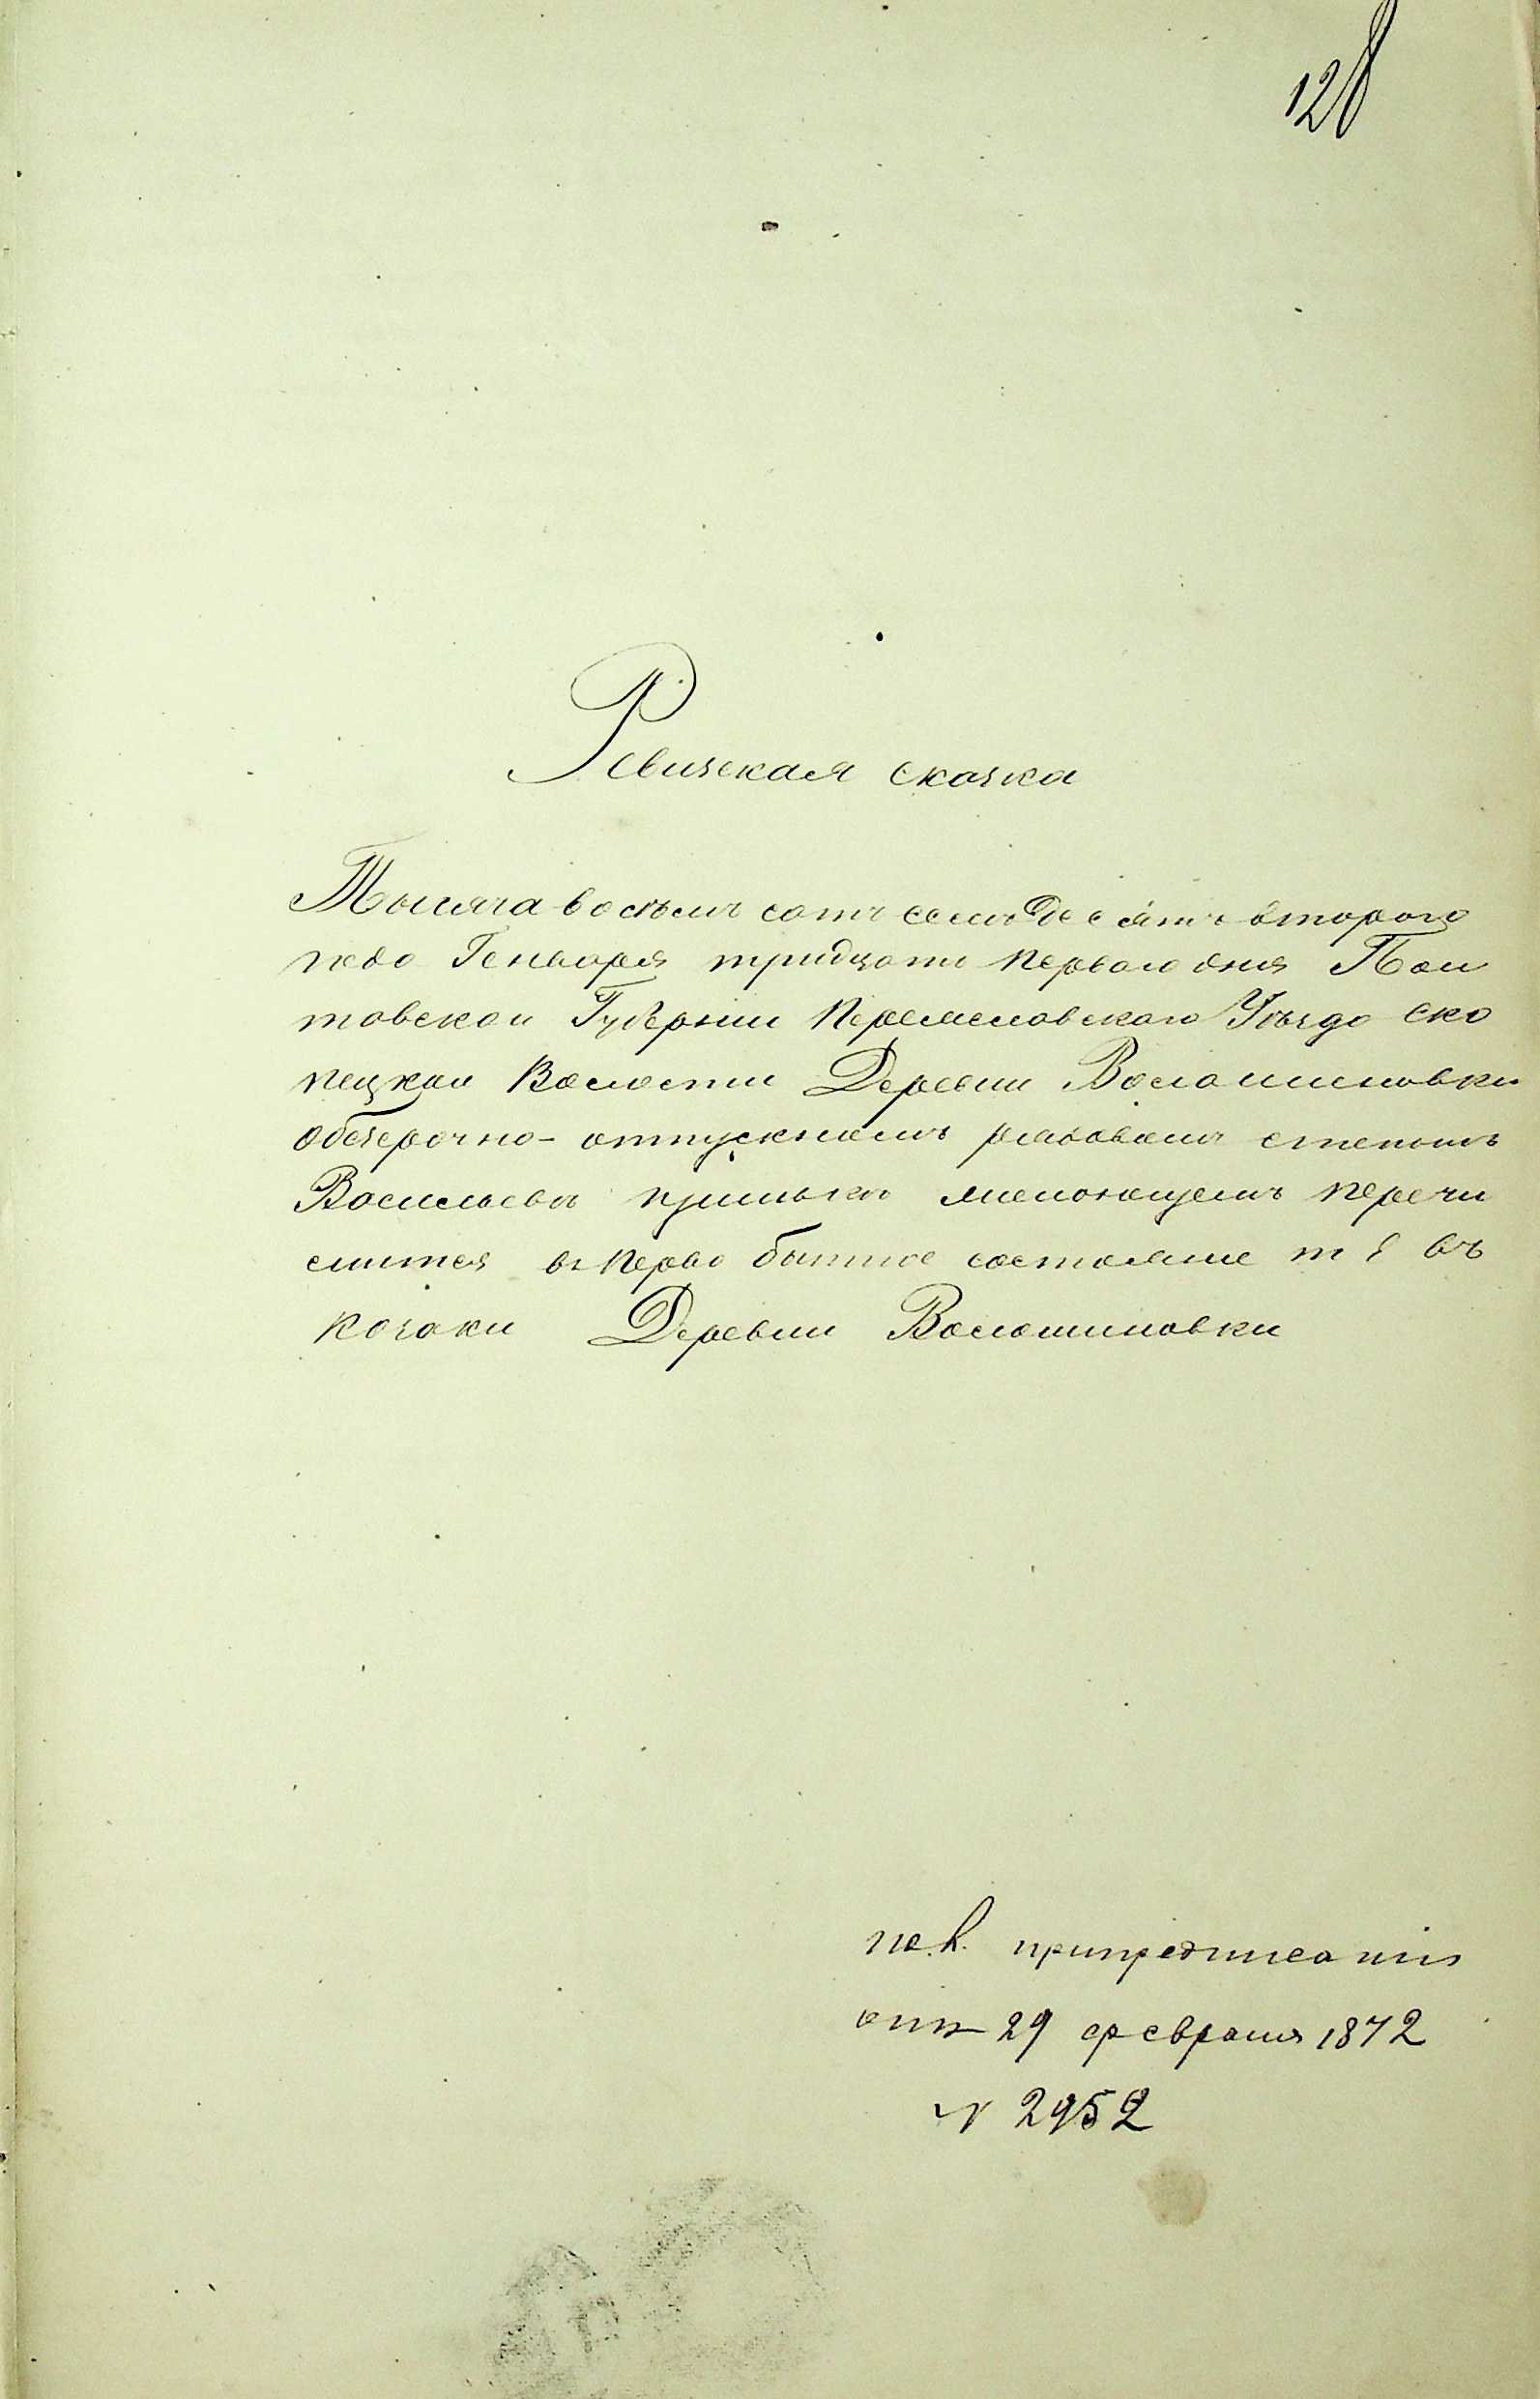 128
Ревизская сказка
Тысяча восъемъ сотъ семъдесятъ второго
года Генваря тридцать первого дня Пол
товской Губернии Переяславского Уѣзда Ско
пецкой Волости Деревни Волошиновки
о безсрочно-отпускномъ рядовомъ степанъ
Васильевъ желающемъ перечи
слится въ перво бытное состояние т е въ
козаки Деревни Волошиновки
при предписании
отъ 29 февраля 1872
N 2952